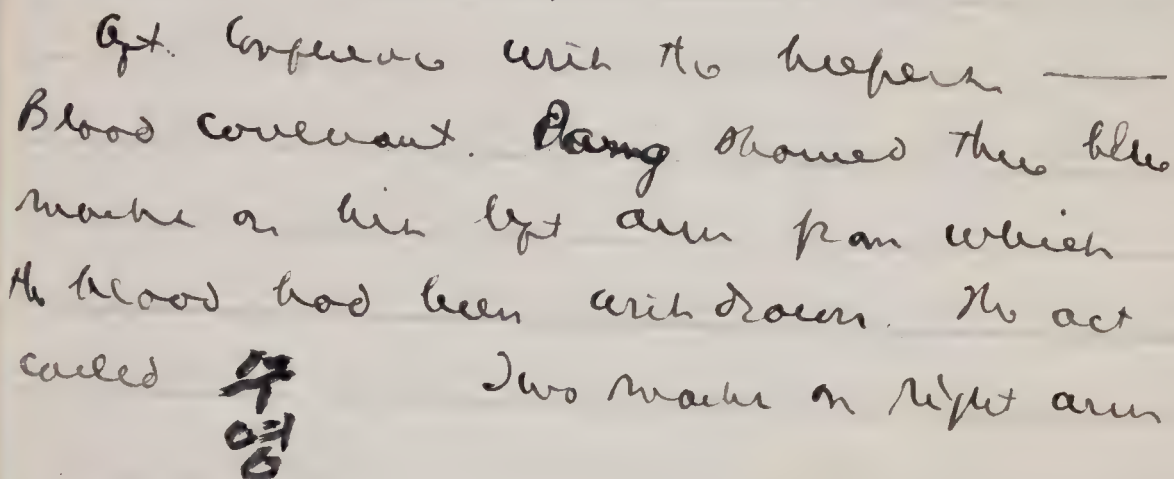 Aft. Conference with the keepers —
Blood covenant. Dang showed three blue
marks on his left arm from which
the blood had been withdrawn. The act
called 수영 Two marks on right arm